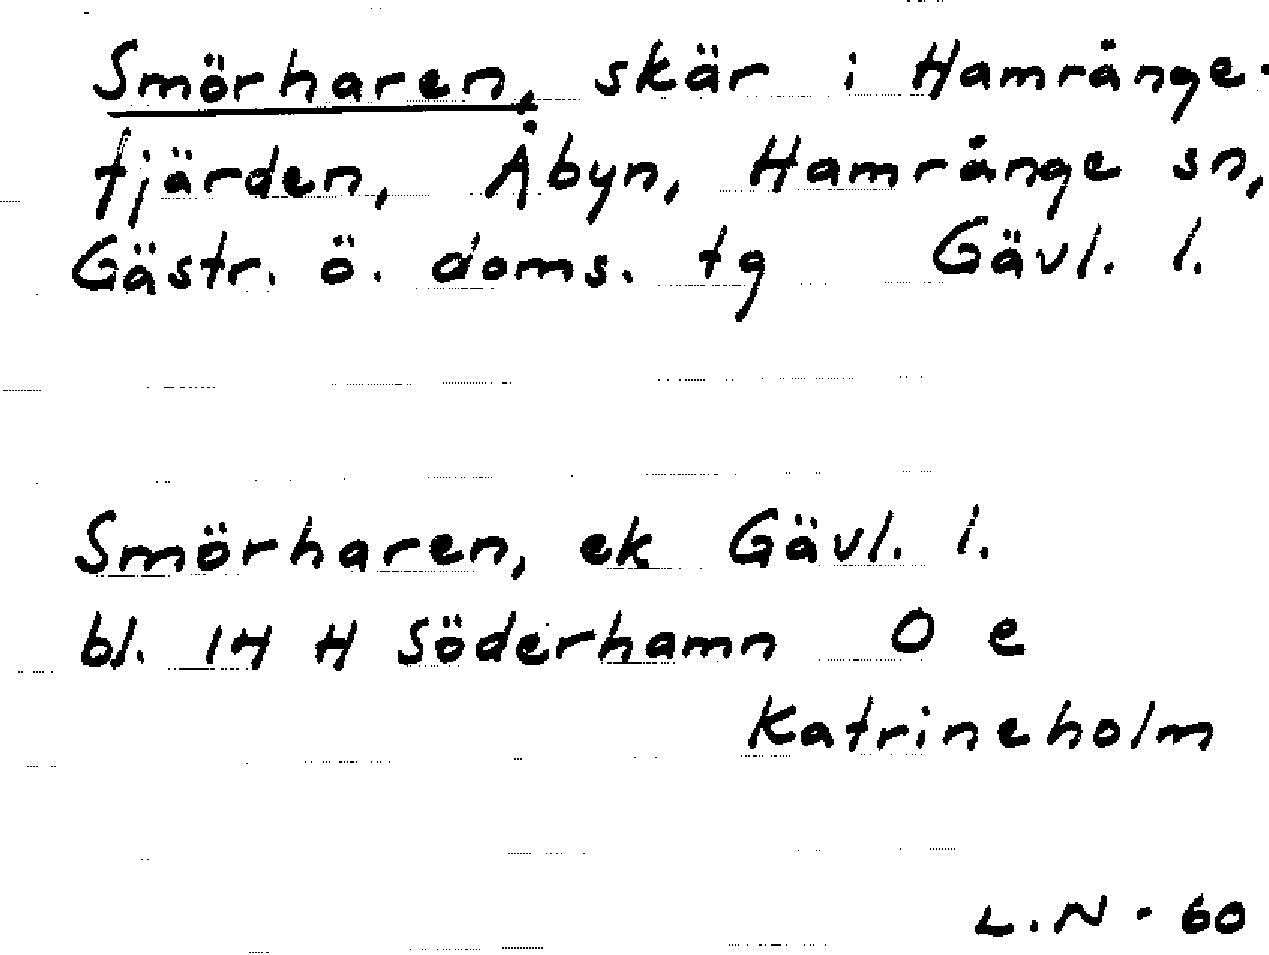 Smörharen, skär i Hamrånge-
fjärden, Åbyn, Hamrånge sn,
Gästr. ö. doms. tg Gävl. l.
Smörharen, ek Gävl. l.
bl. 14 H Söderhamn 0 e
Katrineholm
L.N - 60